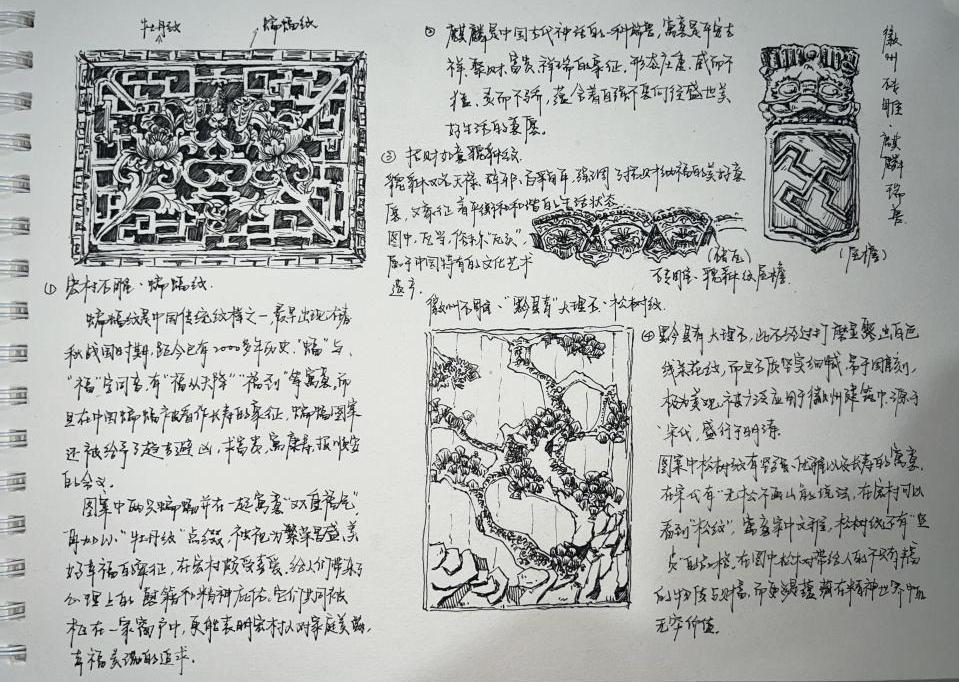 牡丹纹
蝙蝠纹
① 宏村木雕·蝙蝠纹.
蝙蝠纹是中国传统纹样之一,最早出现在春
秋战国时期,距今已有2000多年历史."蝠"与
"福"同音有"福从天降""福到"等寓意,而
且在中国蝙蝠被看作长寿的象征,蝙蝠图案
还被给予了趋吉避凶,求富贵,寓康寿,报平安
的含义.
图案中两只蝙蝠并在一起寓意"双重福气"
再加以"牡丹纹"点缀,被视为繁荣昌盛,美
好幸福的象征,在宏村颇受喜爱,给人们带来了
心理上的慰藉和精神庇佑.它们共同被
在一家窗户中,更能表明宏村人对家庭美满,
幸福美满的追求.
② 麒麟是中国古代神话的一种瑞兽,寓意是平安吉
祥,聚财,富贵,祥瑞的象征,形态庄重,威而不
猛,灵而不骄,蕴含着自强不息,向往盛世美
好生活的意愿.
③ 招财如意貔貅纹.
貔貅又名天禄,辟邪,百解,强调了招财纳福的美好意
愿,又象征着平衡和和谐的生活状态
图中,瓦当,俗称"瓦头",
属于中国特有的文化艺术
遗产.
(檐瓦)
砖雕·貔貅纹屋檐.
徽州砖雕·麒麟瑞兽
(屋檐)
徽州石雕·"黟县青"大理石·松树纹.
④ 黟县青大理石,此石经过打磨呈现出白色
线条花纹,而且石质坚实细腻,易于雕刻,
极为美观,被广泛应用于徽州建筑中,源于
宋代,盛行于明清.
图案中松树纹有坚强,优雅以及长寿的寓意,
在宋代有"无松不画山"的说法,在宏村可以
看到"松纹",寓意家中文雅,松树纹还有"坚
贞"的品格,在图中松树带给人的不只有幸福
的物质与财富,而更是蕴藏在精神世界中的
无穷价值.